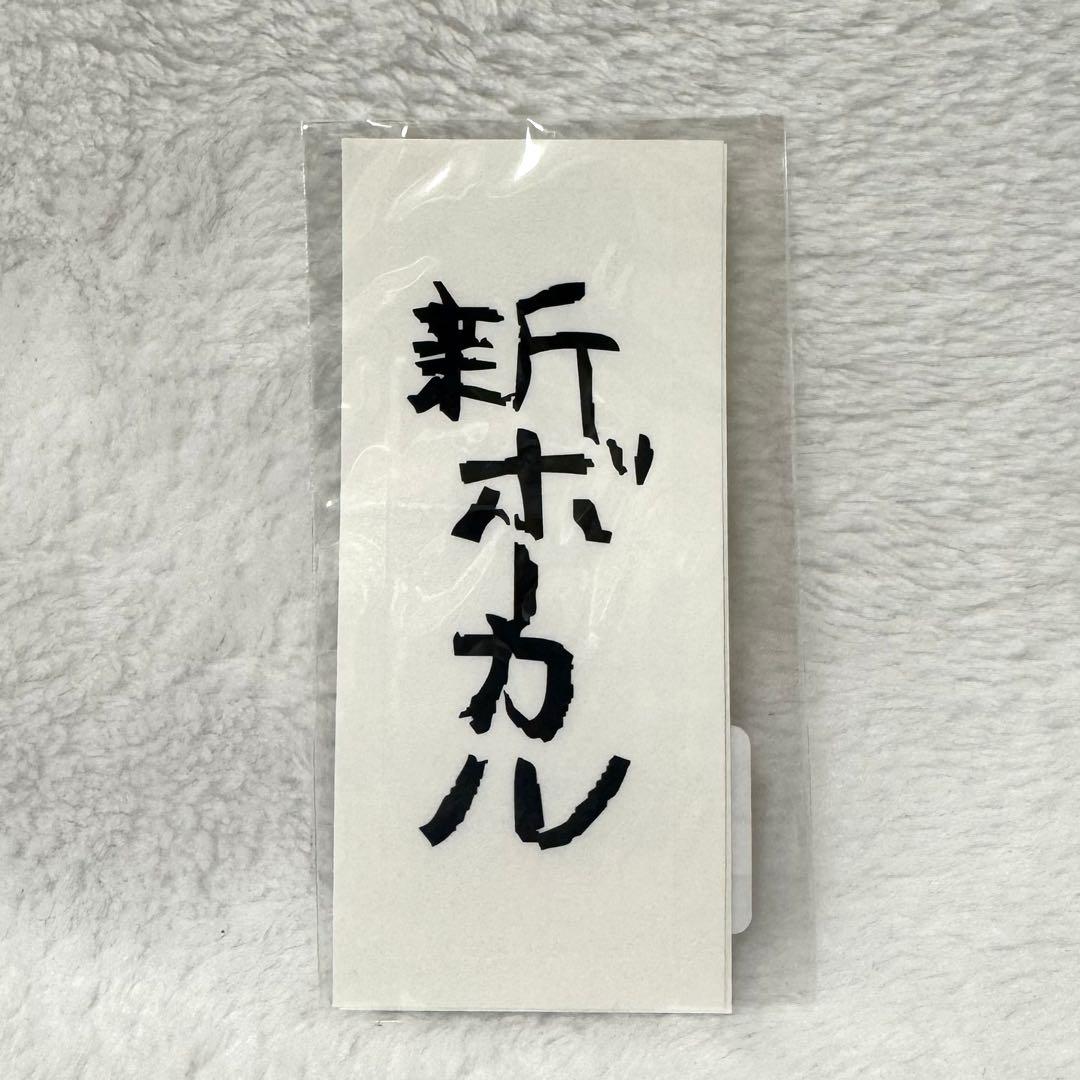 新ボーカル